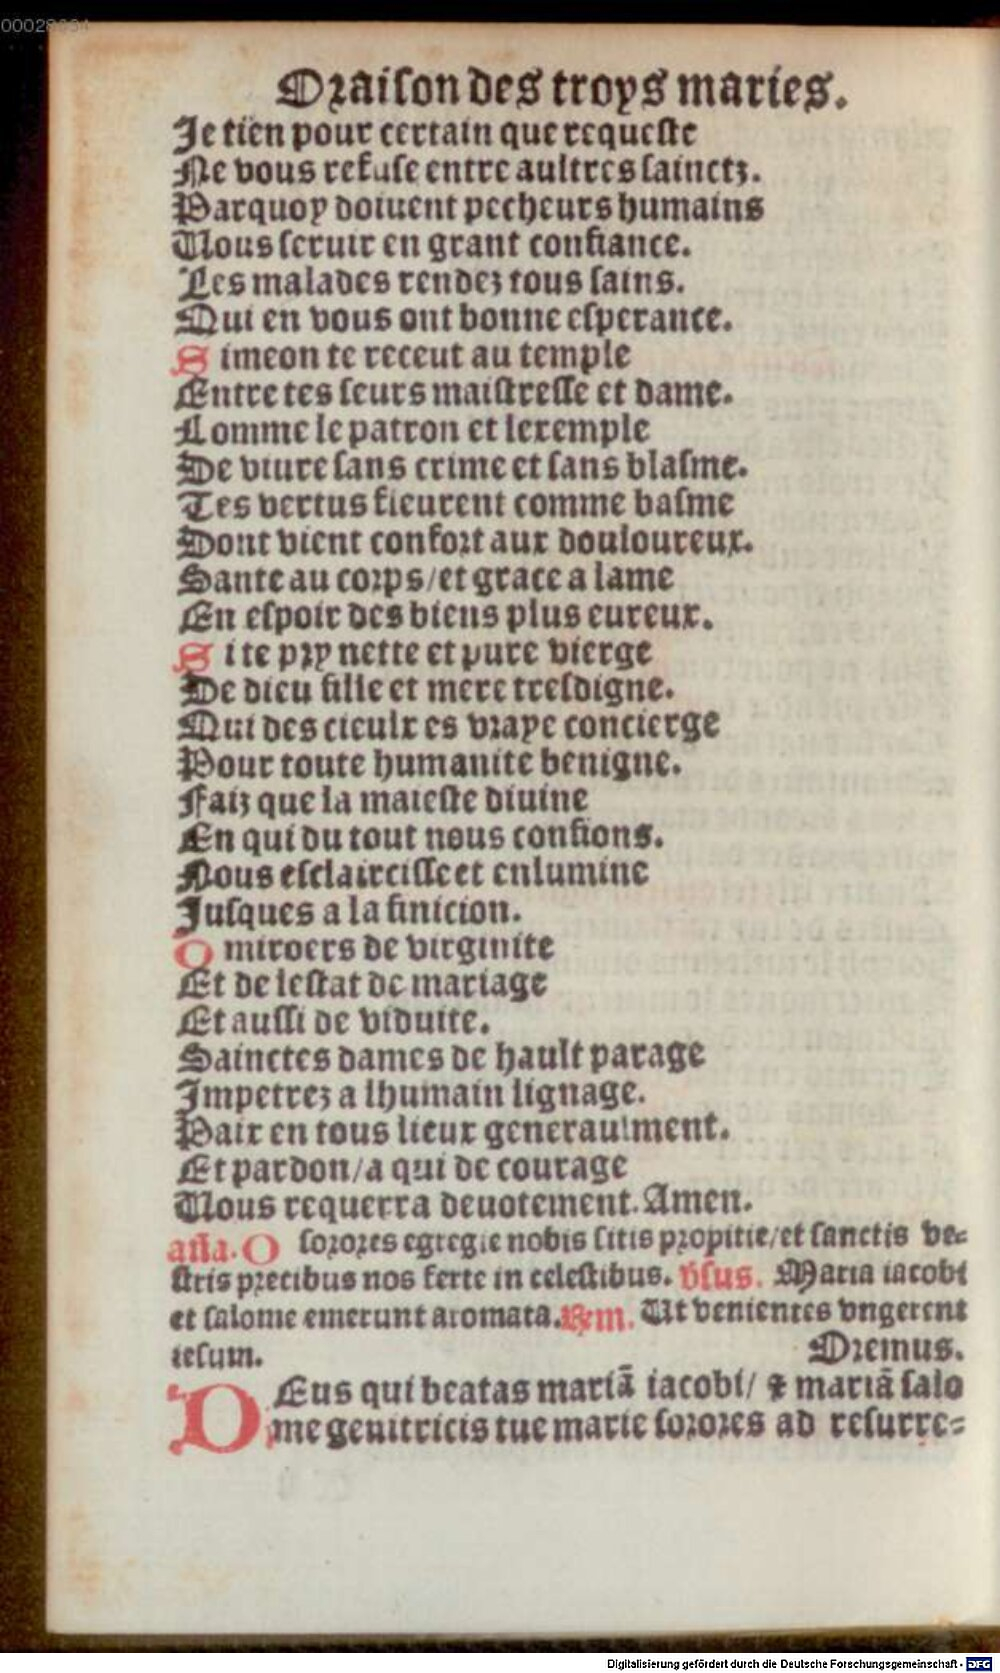 00028054
Oraison des troys maries.
Je tien pour certain que requeste
Ne vous refuse entre aultres sainctz.
Parquoy doiuent pecheurs humains
Vous seruir en grant confiance.
Les malades rendez tous sains.
Qui en vous ont bonne esperance.
Simeon te receut au temple
Entre tes seurs maistresse et dame.
Comme le patron et lexemple
De viure sans crime et sans blasme.
Tes vertus fleurent comme basme
Dont vient confort aux douloureux.
Sante au corps/et grace a lame
En espoir des biens plus eureux.
Si te pry nette et pure vierge
De dieu fille et mere tresdigne.
Qui des cieulx es vraye concierge
Pour toute humanite benigne.
Faiz que la maieste diuine
En qui du tout nous confions.
Nous esclaircisse et enlumine
Jusques a la finicion.
O miroers de virginite
Et de lestat de mariage
Et aussi de viduite.
Sainctes dames de hault parage
Impetrez a lhumain lignage.
Paix en tous lieux generaulment.
Et pardon/a qui de courage
Vous requerra deuotement. Amen.
aña. O sorores egregie nobis sitis propitie/et sanctis ve=
stris precibus nos ferte in celestibus. v̄sus. Maria iacobi
et salome emerunt aromata. Rem. Ut venientes vngerent
iesum. Oremus.
DEus qui beatas mariã iacobi/ ⁊ mariã salo
me genitricis tue marie sorores ad resurre=
Digitalisierung gefördert durch die Deutsche Forschungsgemeinschaft - DFG